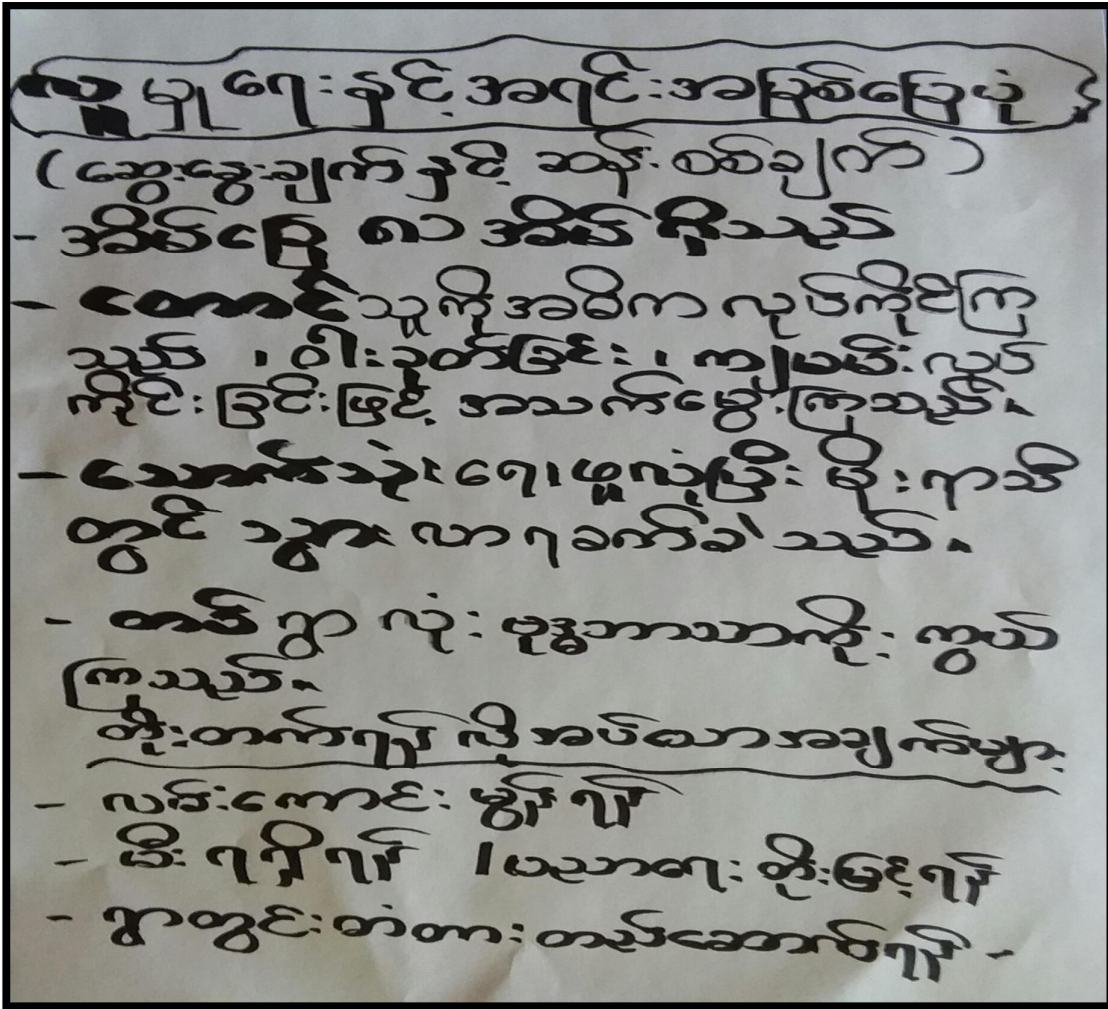 လူမှုရေးနှင့်အရင်းအမြစ်မြေပုံ
(ဆွေးနွေးချက်နှင့် ဆန်းစစ်ချက်)
- အိမ်ခြေ ၈၁ အိမ် ရှိသည်
- တောင်သူကိုအဓိက လုပ်ကိုင်ကြ
သည် ၊ ဝါးခုတ်ခြင်း ၊ ကျပမ်းလုပ်
ကိုင်းခြင်းဖြင့် အသက်မွေးကြသည်။
- သောက်သုံးရေ ရှားပြီး မိုးရာသီ
တွင် သွားလာရခက်ခဲသည်။
- တစ်ရွာလုံး ဗုဒ္ဓဘာသာကိုးကွယ်
ကြသည်။
တိုးတက်ရန်လိုအပ်သောအချက်များ
- လမ်းကောင်းမွန်ရန်
- မီးရရှိရန် ၊ ပညာရေးတိုးမြှင့်ရန်
- ရွာတွင်းတံတားတည်ဆောက်ရန် -